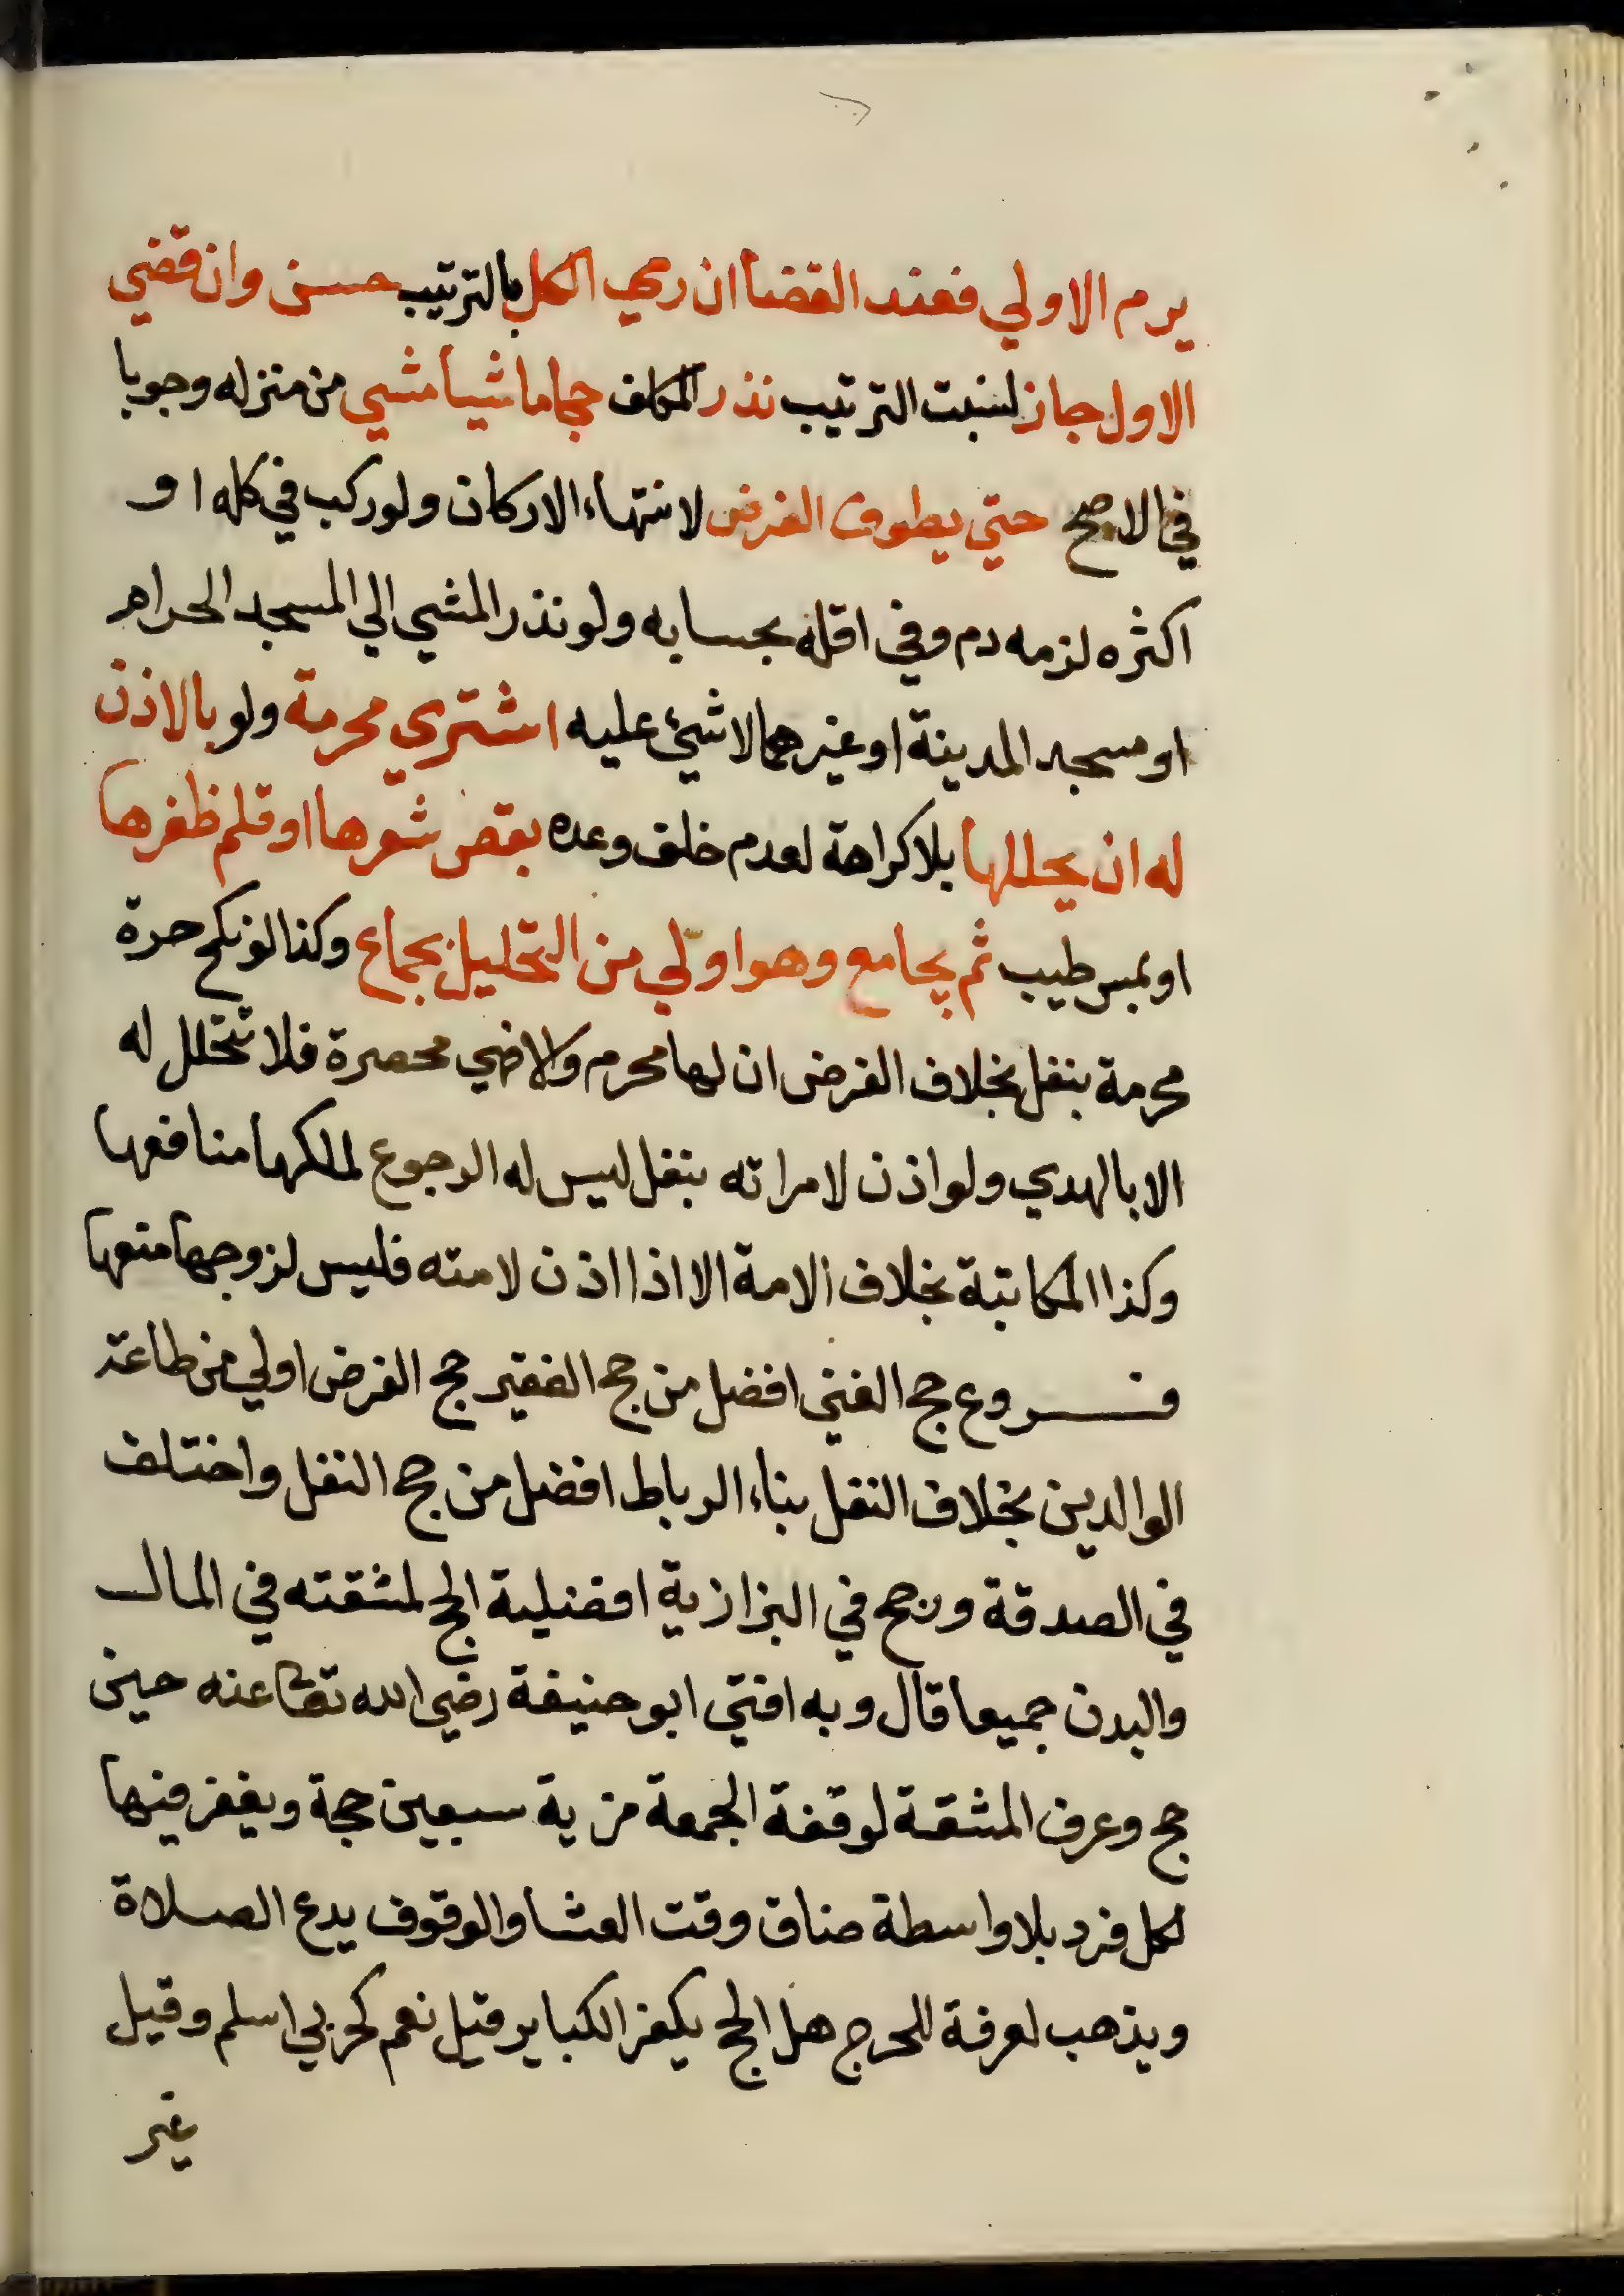 يرم الاولي فعند القضا ان رمي الكل بالترتيب حسن وان قضي
الاول جاز لسنيت الترتيب نذر المكلف حجا ماشيا مشي من منزله وجوبا
في الاصح حتي يطوف الفرض لانتهاء الاركان ولو ركب في كله او
اكثره لزمه دم وفي اقله بحسابه ولو نذر المشي الي المسجد الحرام
او مسجد المدينة او غيرهما لا شئ عليه اشتري محرمة ولو بالاذن
له ان يحللها بلا كراهة لعدم خلف وعده بقص شعرها او قلم ظفرها
او بمس طيب ثم يجامع وهو اولي من التحليل بجماع وكذا لو نكح حرة
محرمة بنفل بخلاف الفرض ان لها محرم والا فهي محصرة فلا تتحلل له
الا بالهدي ولو اذن لامراته بنفل ليس له الرجوع لملكها منافعها
وكذا المكاتبة بخلاف الامة الا اذا اذن لامته فليس لزوجها منعها
فـروع حج الغني افضل من حج الفقير حج الفرض اولي من طاعة
الوالدين بخلاف النفل بناء الرباط افضل من حج النفل واختلف
في الصدقة ورجح في البزازية افضلية الحج لمشقته في المال
والبدن جميعا قال وبه افتي ابو حنيفة رضي الله تعا عنه حين
حج وعرف المشقة لوقفة الجمعة مزية سبعين حجة ويغفر فيها
لكل فرد بلا واسطة ضاق وقت العشا والوقوف يدع الصلاة
ويذهب لعرفة للحرج هل الحج يكفر الكباير قيل نعم كحربي اسلم وقيل
غير